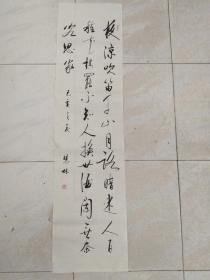 夜涼吹笛千山月路暗迷人百
種花棋罷不知人換世酒闌無奈
客思家 己亥之夏
林